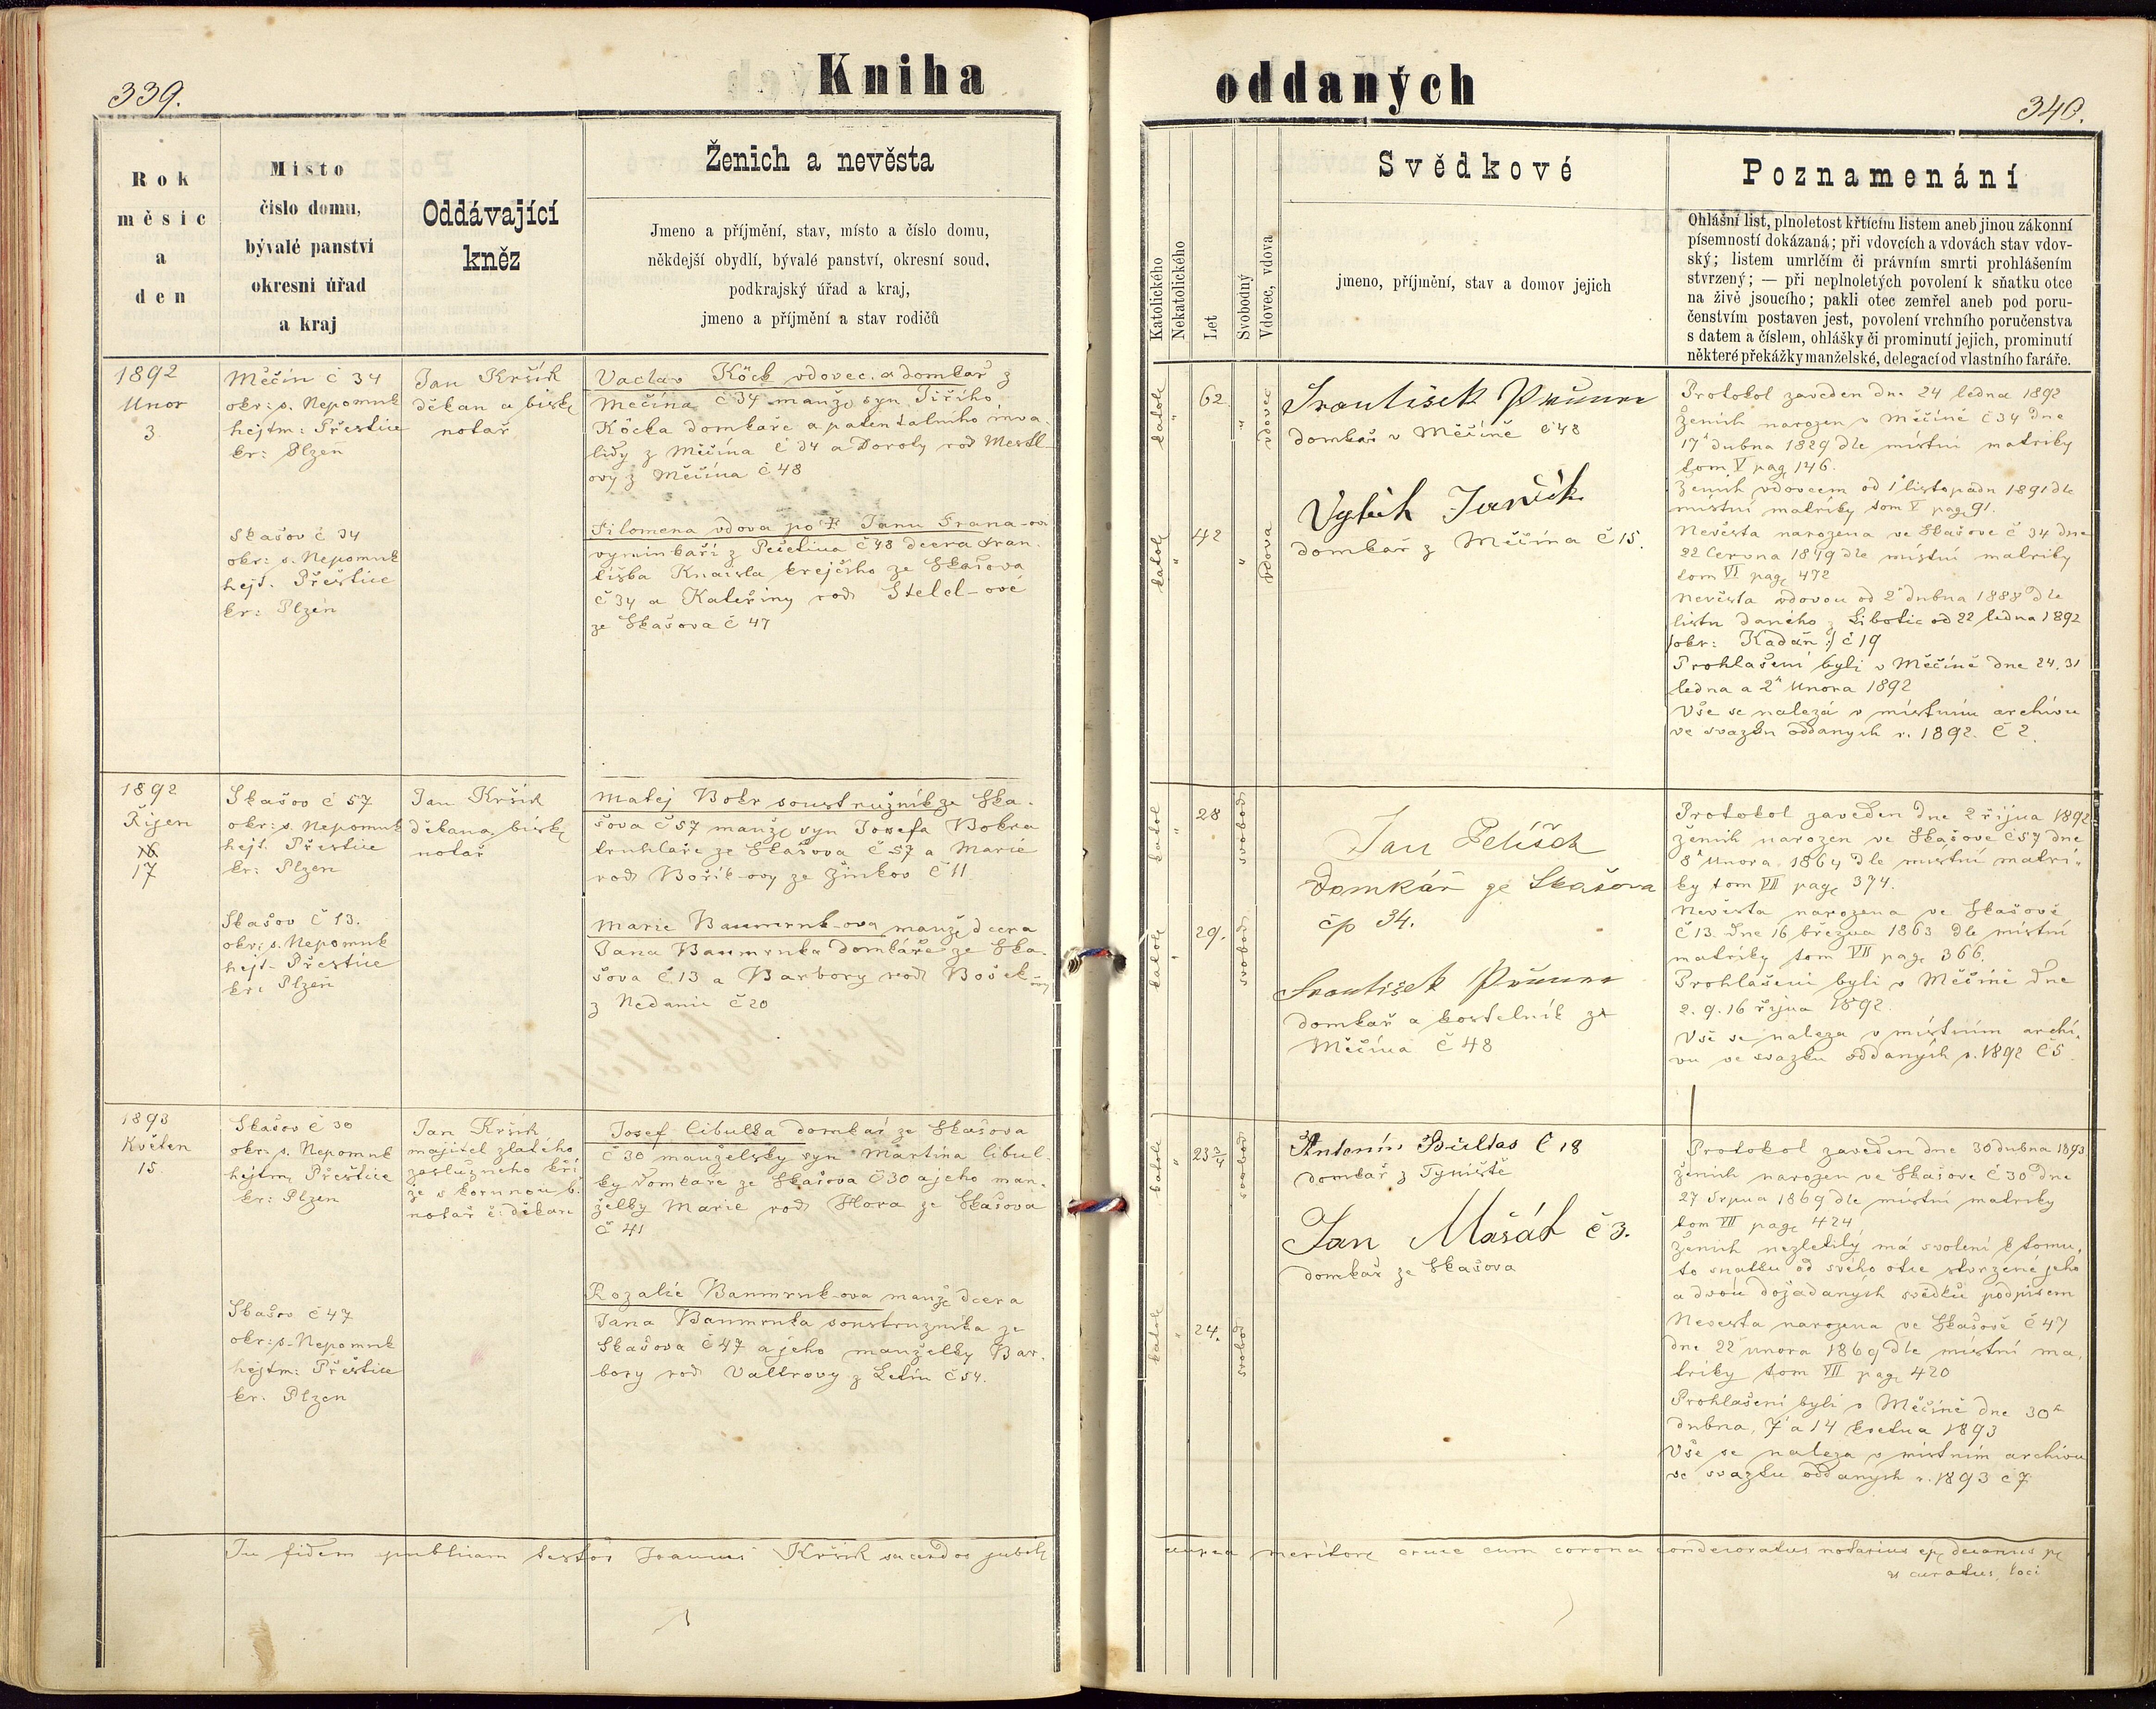 339.
Kniha
Rok
měsíc
a
den
Místo
číslo domu,
bývalé panství
okresní úřad
a kraj
Oddávající
kněz
Ženich a nevěsta
Jmeno a příjmění, stav, místo a číslo domu,
někdejší obydlí, bývalé panství, okresní soud,
podkrajský úřad a kraj,
jmeno a příjmění a stav rodičů
1892
Unor
3
Měčín č 34
okr: s. Nepomuk
hejtm: Přeštice
kr: Plzen
Jan Kršík
děkan a bisk
notář
Vaclav Köck vdovec. a domkař z
Mečína č 34 manž syn Jiřího
Köcka domkaře a patentalního inva
lidy z Měčína č 34 a Doroty rod Mestl
ovy z Měčína č 48
Skašov č 34
okr: s. Nepomuk
hejt. Přeštice
kr: Plzen
Filomena vdova po † Janu Frana-ovi
č 48 dcera Fran
tiška krejčího ze Skašova
č 34 a Kateřiny rod Stelcl-ové
ze Skašova č 47
1892
Řijen
16
17
Skašov č 57
okr: s. Nepomuk
hejt. Přeštice
kr: Plzen
Jan Kršík
děkan a bisk
notář
Matěj Bokr soustružník ze Ska-
šova č 57 manž syn Josefa Bokra
truhlaře ze Skašova č 57 a Marie
rod Bořík-ovy ze Žinkov č 11
Skašov č 13.
okr: s. Nepomuk
hejt. Přeštice
kr: Plzen
Marie Baumruk-ova manž dcera
Jana Baumruka domkáře ze Ska-
šova č 13 a Barbory rod Bošek-ovy
z Nedanic č 20
1893
Květen
15
Skašov č 30
okr: s. Nepomuk
hejtm. Přeštice
kr: Plzen
Jan Kršík
majitel zlatého
zaslužneho kří
že s korunou b.
notář č: děkan
Josef Cibulka domkař ze Skašova
č 30 manželsky syn Martina Cibul-
ky domkaře ze Skašova č 30 a jeho man-
želky Marie rod Hora ze Skašova
č 41
Skašov č 47
okr: s. Nepomuk
hejtm: Přeštice
kr. Plzen
Rozalie Baumruk-ova manž dcera
Jana Baumruka soustružníka ze
Skašova č 47 a jeho manželky Bar-
bory rod Valtrovy z Letin č 54.
In fidem publicam testor Joannes Kršík sacerdos jubil
oddaných
340.
Katolického
Nekatolického
Let
Svobodný
Vdovec, vdova
Svědkové
jmeno, příjmění, stav a domov jejich
Poznamenání
Ohlášní list, plnoletost křticím listem aneb jinou zákonní
písemností dokázaná; při vdovcích a vdovách stav vdov-
ský; listem umrlčím či právním smrti prohlášením
stvrzený; — při neplnoletých povolení k sňatku otce
na živě jsoucího; pakli otec zemřel aneb pod poru-
čenstvím postaven jest, povolení vrchního poručenstva
s datem a číslem, ohlášky či prominutí jejich, prominutí
některé překážky manželské, delegací od vlastního faráře.
katol
"
62
"
vdovec
František Průcha
domkař v Měčíně č 48
Vojtěch Jarčík
domkař z Měčína č 15.
katol
"
42
"
vdova
Protokol zaveden dne 24 ledna 1892
Ženich narozen v Měčíně č 34 dne
17 dubna 1829 dle místní matriky
tom V pag 146.
Ženich vdovcem od 1 listopadu 1891 dle
místní matriky tom V pag 91.
Nevěsta narozena ve Skašove č 34 dne
22 června 1849 dle místní matriky
tom VI pag 472
Nevěsta vdovou od 2 dubna 1888 dle
listu daného z Libotic od 22 ledna 1892
/okr: Kadaň:/ č 19
Prohlašeni byli v Měčíně dne 24. 31
ledna a 2 Unora 1892
Vše se naleza v místním archivu
ve svazku oddanych r. 1892. Č 2.
katol
"
28
svobod
Jan Pelíšek
Domkář ze Skašova
čp 34.
katol
"
29.
svobod
František Průcha
domkař a kostelník ze
Měčína č 48
Protokol zaveden dne 2 října 1892
ženich narozen ve Skašově č 57 dne
8 Unora 1864 dle místní matri-
ky tom VII pag 374.
Nevěsta narozena ve Skašově
č 13. dne 16 března 1863 dle místní
matriky tom VII pag 366.
Prohlašeni byli v Měčíně dne
2. 9. 16 října 1892.
Vše se naleza v místním archi-
vu ve svazku oddaných r. 1892 č 5.
katol
"
23 3/4
svobod
Antonín Bultas č 18
domkař z Tyniště
Jan Mašát č 3.
domkař ze Skašova
katol
"
24.
svobod
Protokol zaveden dne 30 dubna 1893
ženich narozen ve Skašove č 30 dne
27 Srpna 1869 dle místní matriky
tom VII pag 424
Ženich nezletilý má svolení k tomu-
to snatku od svého otce stvrzené jeho
a dvou dožadaných svědků podpisem
Nevesta narozena ve Skašově č 47
dne 22 unora 1869 dle místní ma-
triky tom VII pag 420
Prohlašeni byli v Měčíně dne 30
dubna, 7 a 14 května 1893
Vše se naleza v místním archivu
ve svazku oddanych r. 1893 č 7
aurea cruce cum corona condecoratus notarius ep decanus
et curatus loci